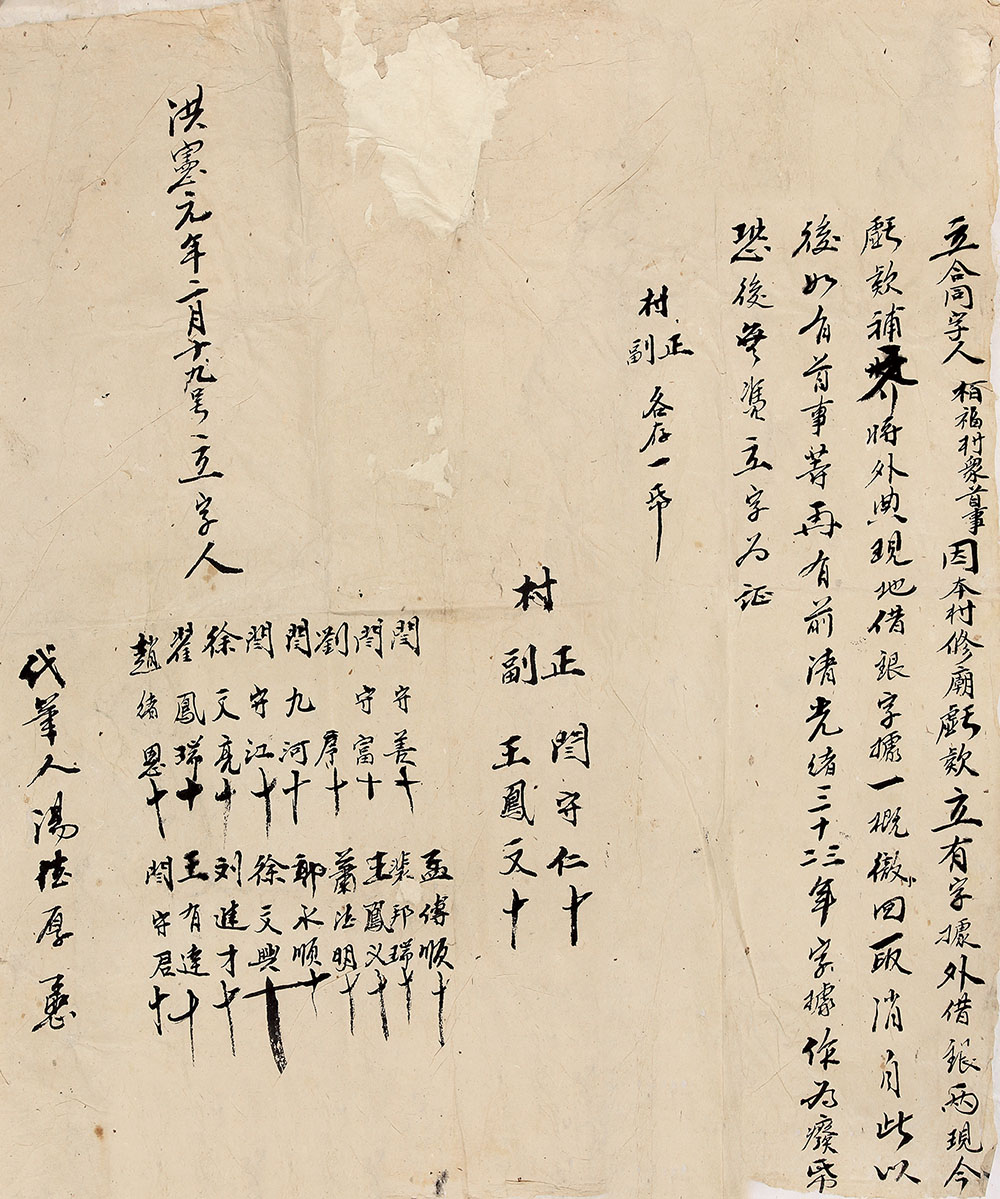 立合同字人栢福村衆首事因本村修廟虧欵立有字據外借銀兩現今
虧欵補齊將外典現地借銀字據一概繳回取消自此以
後如有首事等再有前清光緒三十二三年字據作為廢帋
恐後無憑立字为証
村正副各存一帋
村正 閆守仁十
副 王鳳文十
閆守善十 孟傳順十
閆守富十 裴邦瑞十
劉序十 王鳳义十
閆九河十 蕭法明十
閆守江十 郭永順十
徐文亮十 徐文興十
翟鳳瑞十 刘進才十
趙緒恩十 王有達十
閆守君十
洪憲元年二月十九号立字人
代筆人湯德厚